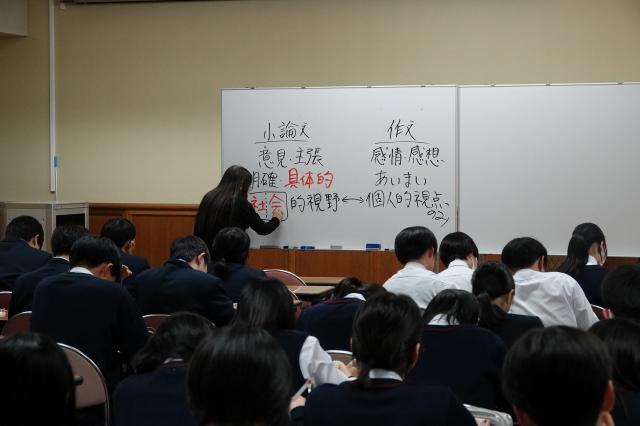 小論文
意見・主張
明確・具体的
社会的視野↔個人的視点
作文
感情・感想
あいまい